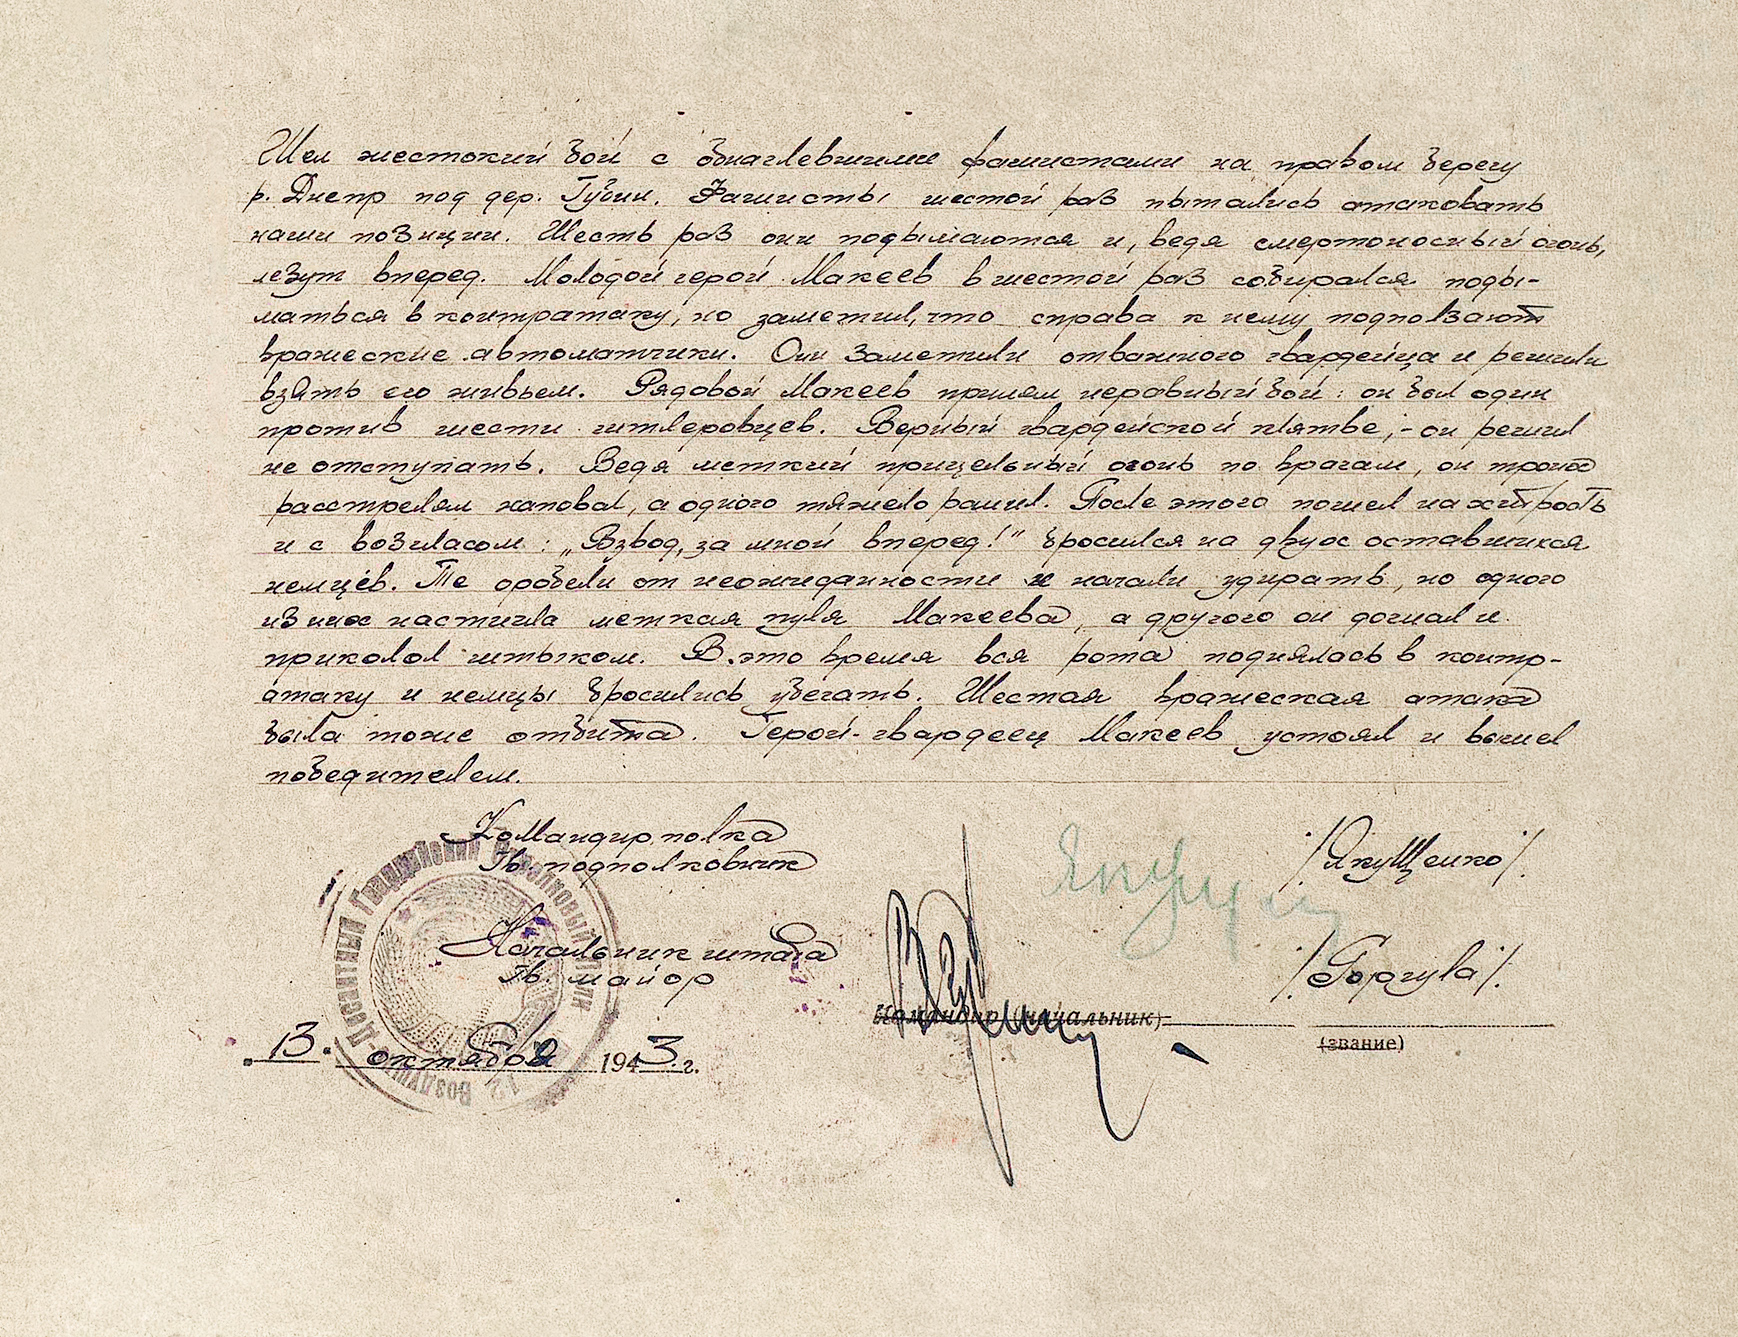 Шел жестокий бой с обнаглевшими фашистами на правом берегу
р. Днепр под дер. Губин. Фашисты шестой раз пытались атаковать
наши позиции. Шесть раз они подымаются и, ведя смертоносный огонь,
лезут вперед. Молодой герой Макеев в шестой раз собирался поды-
маться в контратаку, но заметил, что справа к нему подползают
вражеские автоматчики. Они заметили отважного гвардейца и решили
взять его живьем. Рядовой Макеев принял неравный бой: он был один
против шести гитлеровцев. Верный гвардейской клятве, - он решил
не отступать. Ведя меткий прицельный огонь по врагам, он троих
расстрелял наповал, а одного тяжело ранил. После этого пошел на хитрость
и с возгласом: „Взвод, за мной вперед!" бросился на двух оставшихся
немцев. Те оробели от неожиданности и начали удирать, но одного
из них настигла меткая пуля Макеева, а другого он догнал и
приколол штыком. В это время вся рота поднялась в контр-
атаку и немцы бросились убегать. Шестая вражеская атака
была тоже отбита. Герой-гвардеец Макеев устоял и вышел
победителем.
Командир полка
Гв. подполковник
/Якущенко/.
Начальник штаба
Гв. майор
/Горгула/.
Командир (начальник)
(звание)
"13" октября 1943 г.
12 Воздушно-Десантный Гвардейский Стрелковый Полк